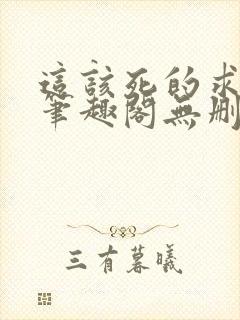 這該死的求
筆趣閣無刪
三有暮曦